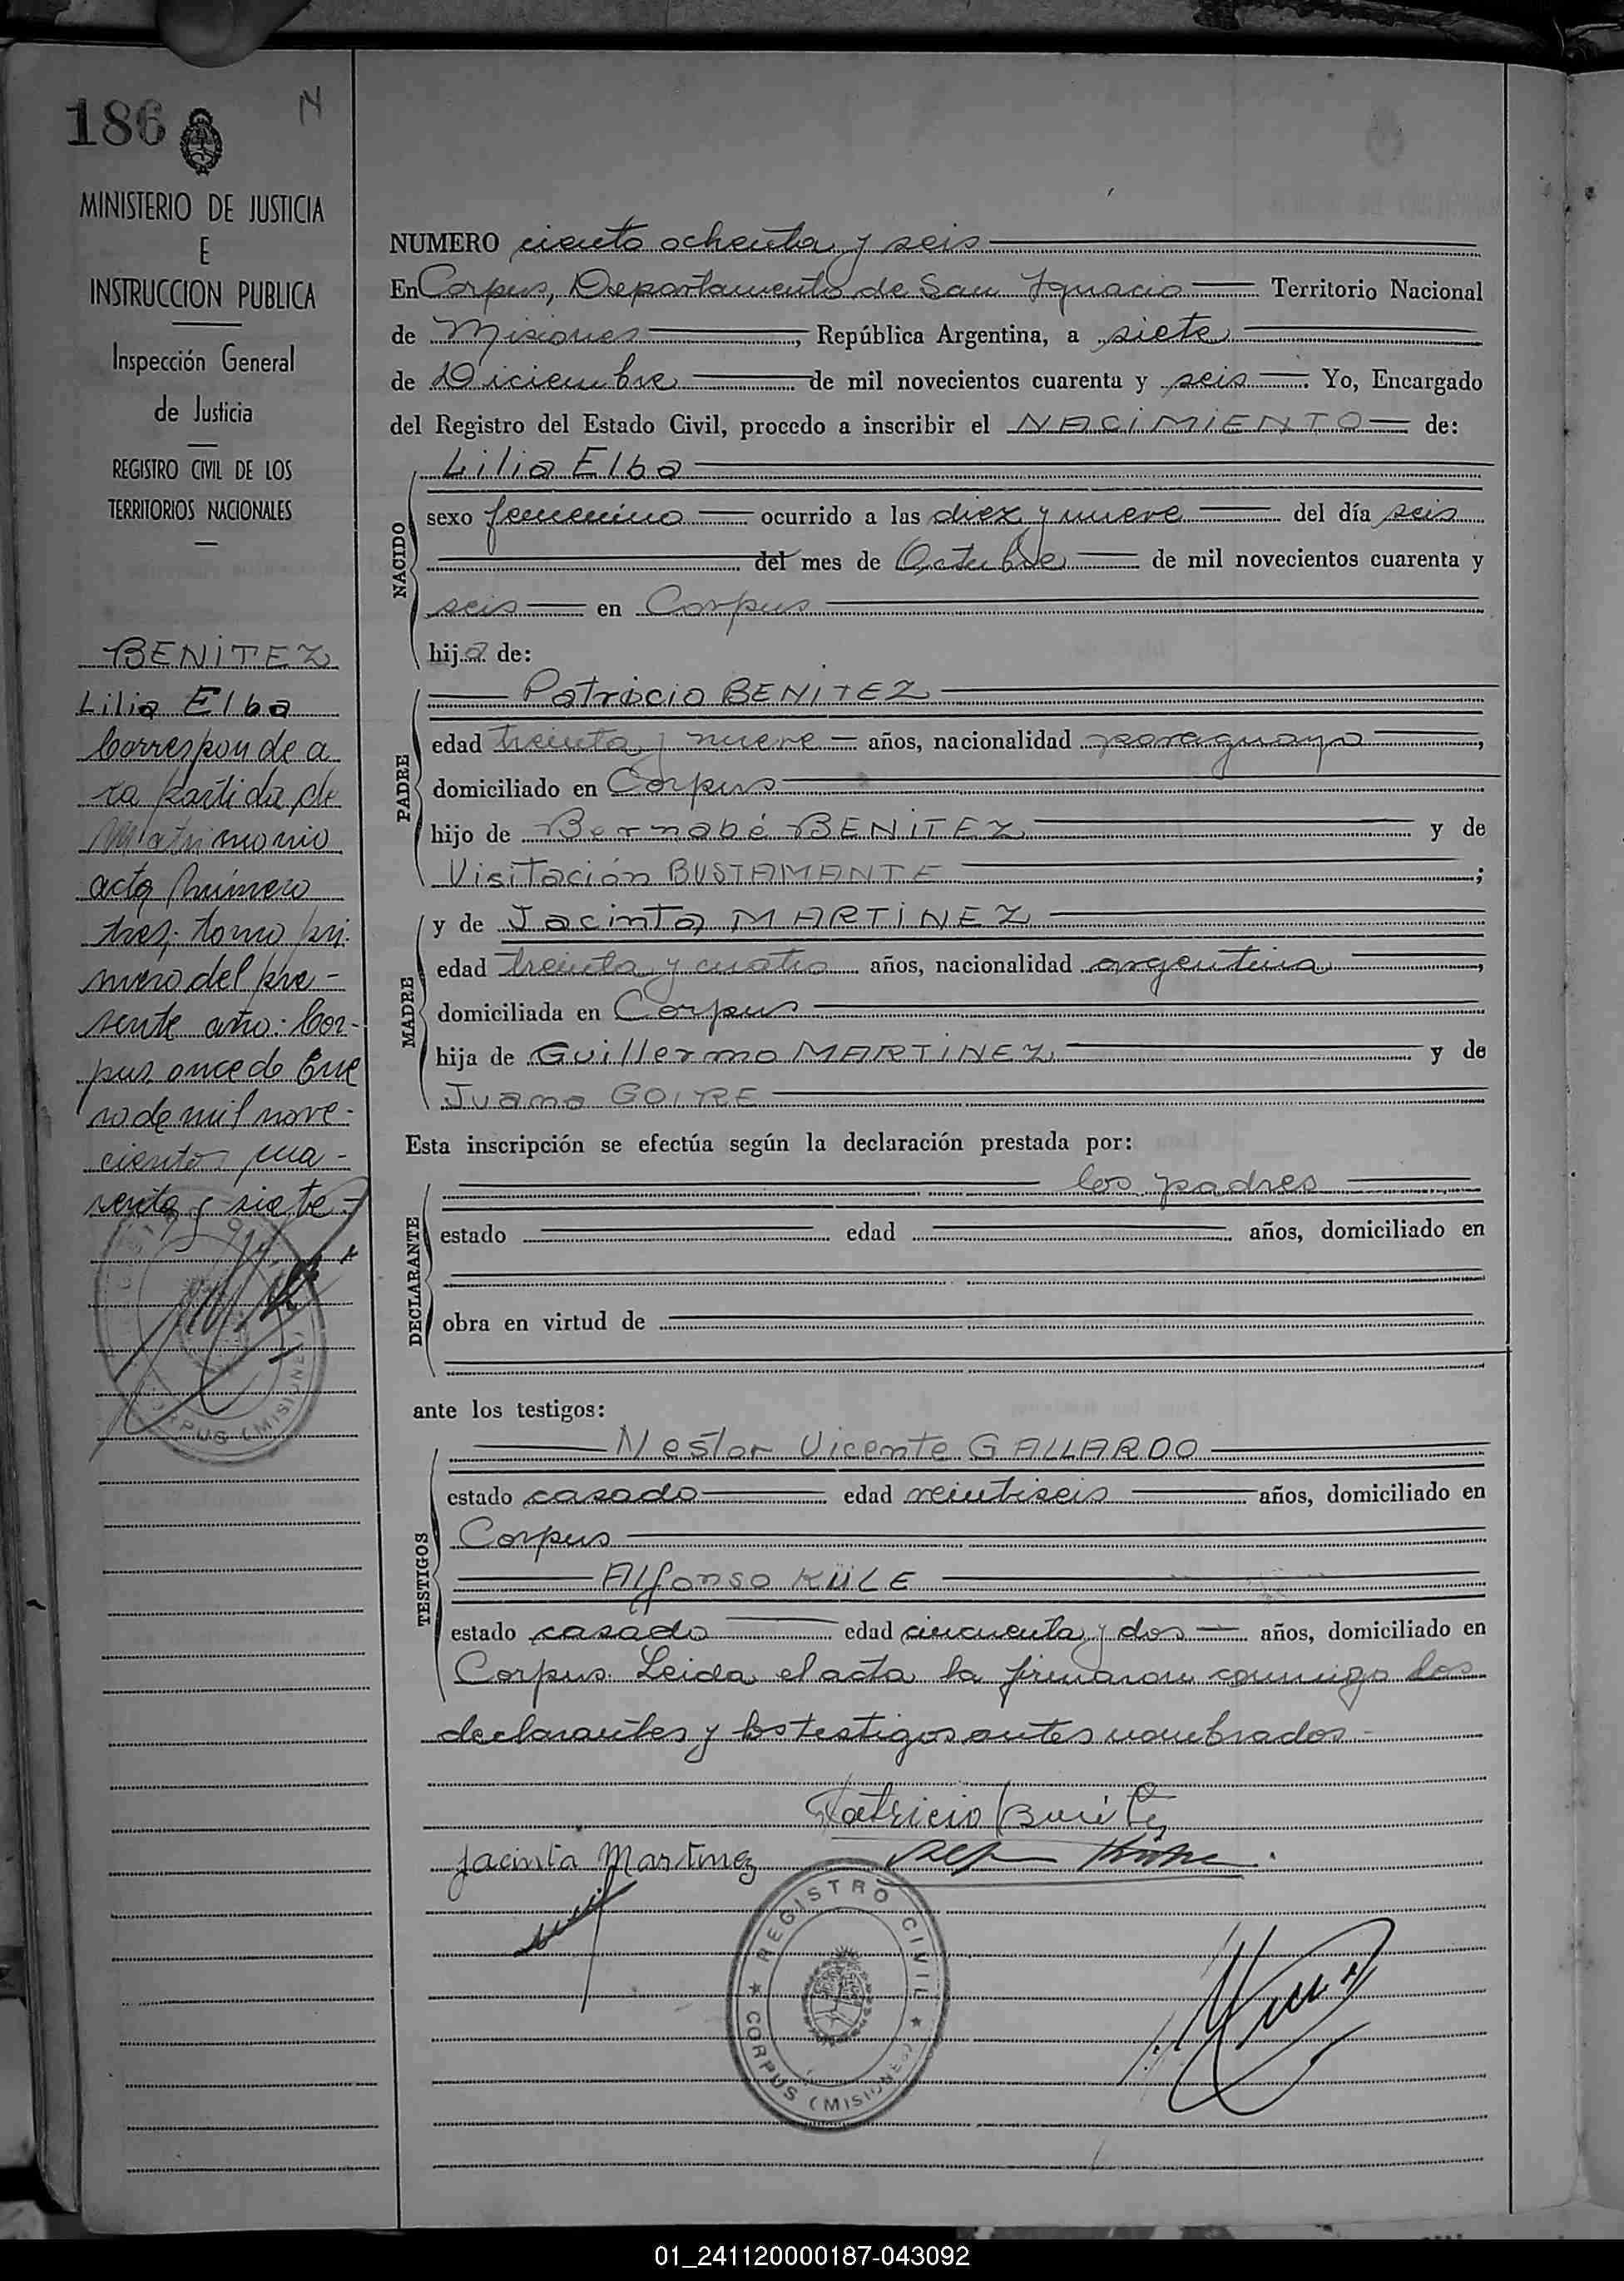 186 N
MINISTERIO DE JUSTICIA
E
INSTRUCCION PUBLICA
Inspección General
de Justicia
REGISTRO CIVIL DE LOS
TERRITORIOS NACIONALES
BENITEZ
Lilia Elba
Corresponde a
la partida de
Matrimonio
acta número
tres, tomo pri-
mero del pre-
sente año: Cor-
pus, once de Ene
ro de mil nove-
cientos cua-
renta y siete-
CORPUS (MISIONES)
NUMERO ciento ochenta y seis
En Corpus, Departamento de San Ignacio Territorio Nacional
de Misiones, República Argentina, a siete
de Diciembre de mil novecientos cuarenta y seis. Yo, Encargado
del Registro del Estado Civil, procedo a inscribir el NACIMIENTO de:
NACIDO
Lilia Elba
sexo femenino ocurrido a las diez y nueve del día seis
del mes de Octubre de mil novecientos cuarenta y
seis en Corpus
hija de:
PADRE
Patricio BENITEZ
edad treinta y nueve años, nacionalidad paraguaya,
domiciliado en Corpus
hijo de Bernabé BENITEZ y de
Visitación BUSTAMANTE;
MADRE
y de Jacinta MARTINEZ
edad treinta y cuatro años, nacionalidad argentina,
domiciliada en Corpus
hija de Guillermo MARTINEZ y de
Juana GOIRE
Esta inscripción se efectúa según la declaración prestada por:
DECLARANTE
los padres
estado edad años, domiciliado en
obra en virtud de
ante los testigos:
TESTIGOS
Nestor Vicente GALLARDO
estado casado edad veintiseis años, domiciliado en
Corpus
Alfonso KÜLE
estado casado edad cincuenta y dos años, domiciliado en
Corpus. Leida el acta la firmaron conmigo los
declarantes y los testigos antes nombrados.-
Patricio Benitez
Jacinta Martinez
REGISTRO CIVIL
CORPUS (MISIONES)
01_241120000187-043092